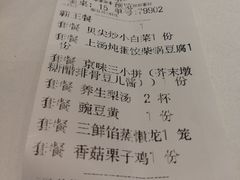 桌：15 单号：79902
新王餐
套餐 贝尖炒小白菜1份
套餐 上汤炖蛋饺柴锅豆腐1
份
套餐 京味三小拼（芥末墩
糖醋排骨豆儿酱）1份
套餐 养生梨汤 2 杯
套餐 豌豆黄 1份
套餐 三鲜馅蒸懒龙1 笼
套餐 香菇栗子鸡1 份